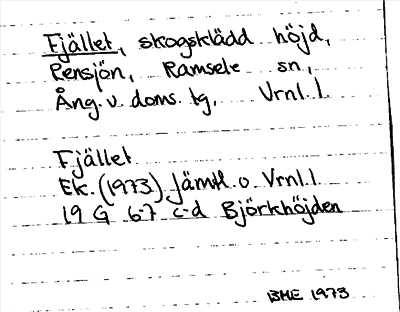 Fjället, skogsklädd höjd,
Rensjön, Ramsele sn,
Ång. v. doms. tg, Vrnl. l.
Fjället
Ek. (1973) Jämtl. o Vrnl. l
19 G 6-7 c-d Björkhöjden
BHE 1973